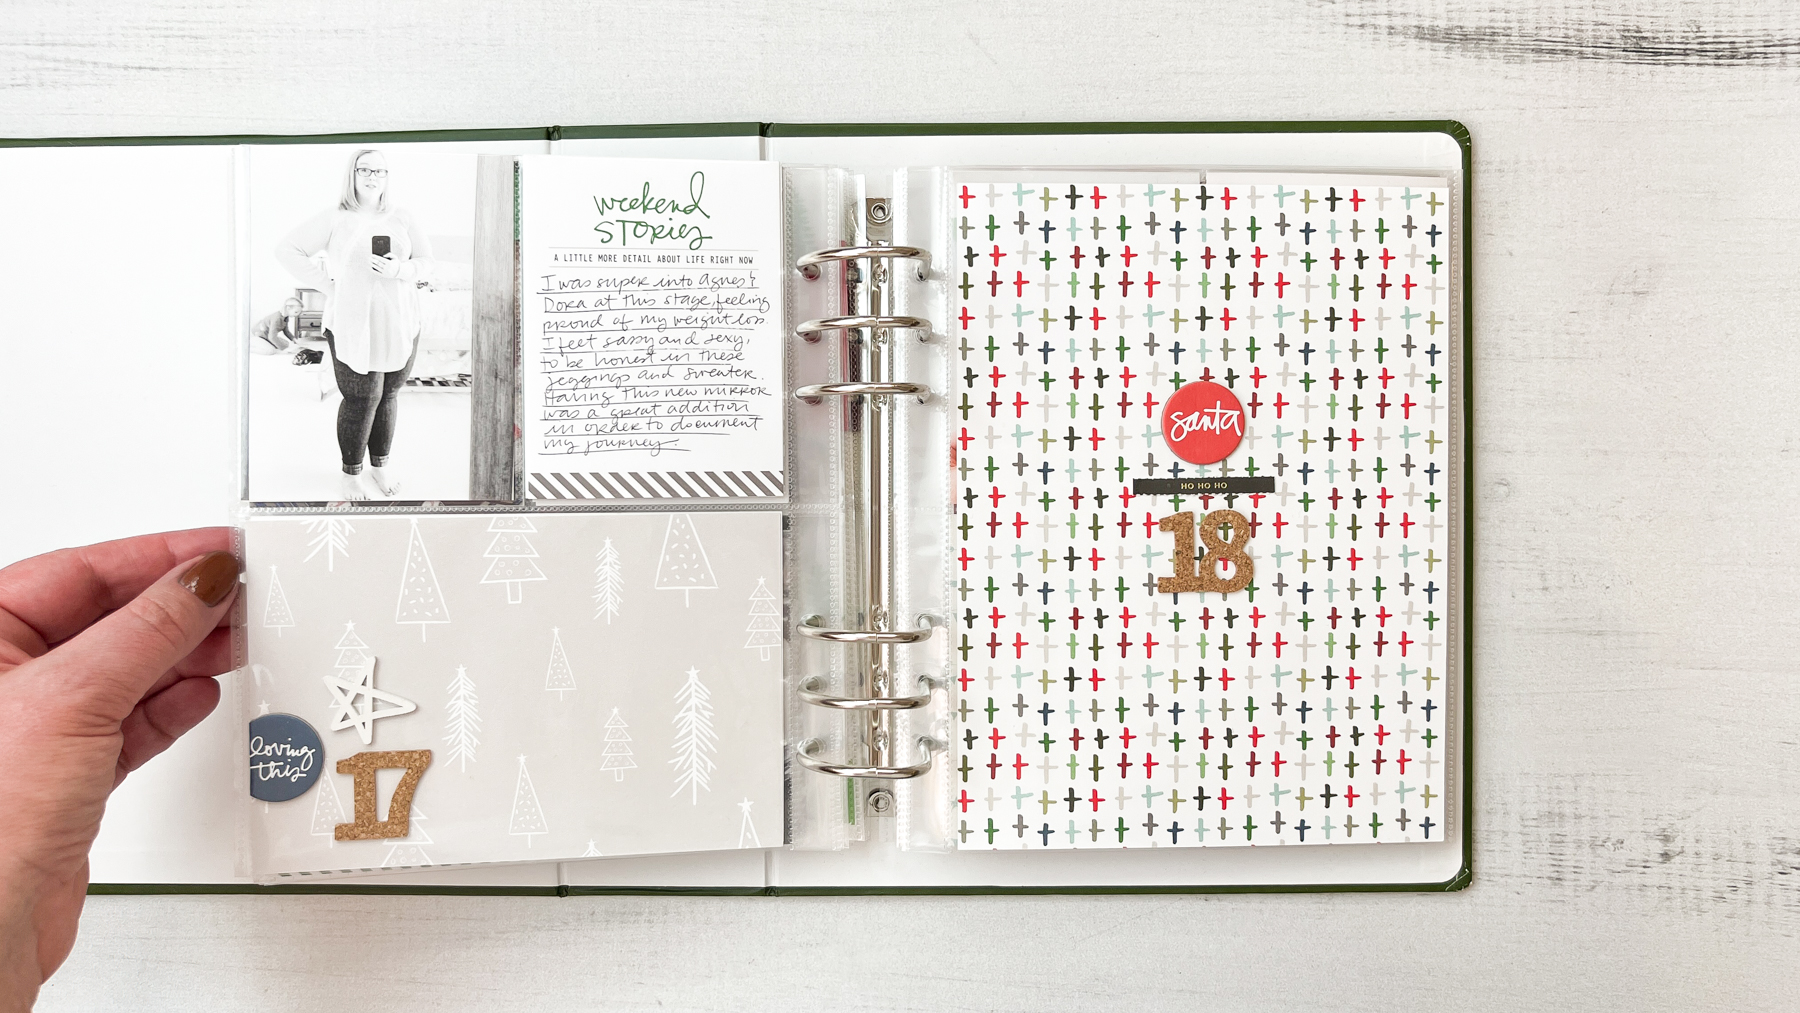 weekend
STORIES
A LITTLE MORE DETAIL ABOUT LIFE RIGHT NOW
I was super into Agnes &
Dora at this stage, feeling
proud of my weight loss.
I feel sassy and sexy,
to be honest in these
jeggings and sweater.
Having this new mirror
was a great addition
in order to document
my journey.
loving
this
17
santa
HO HO HO
18